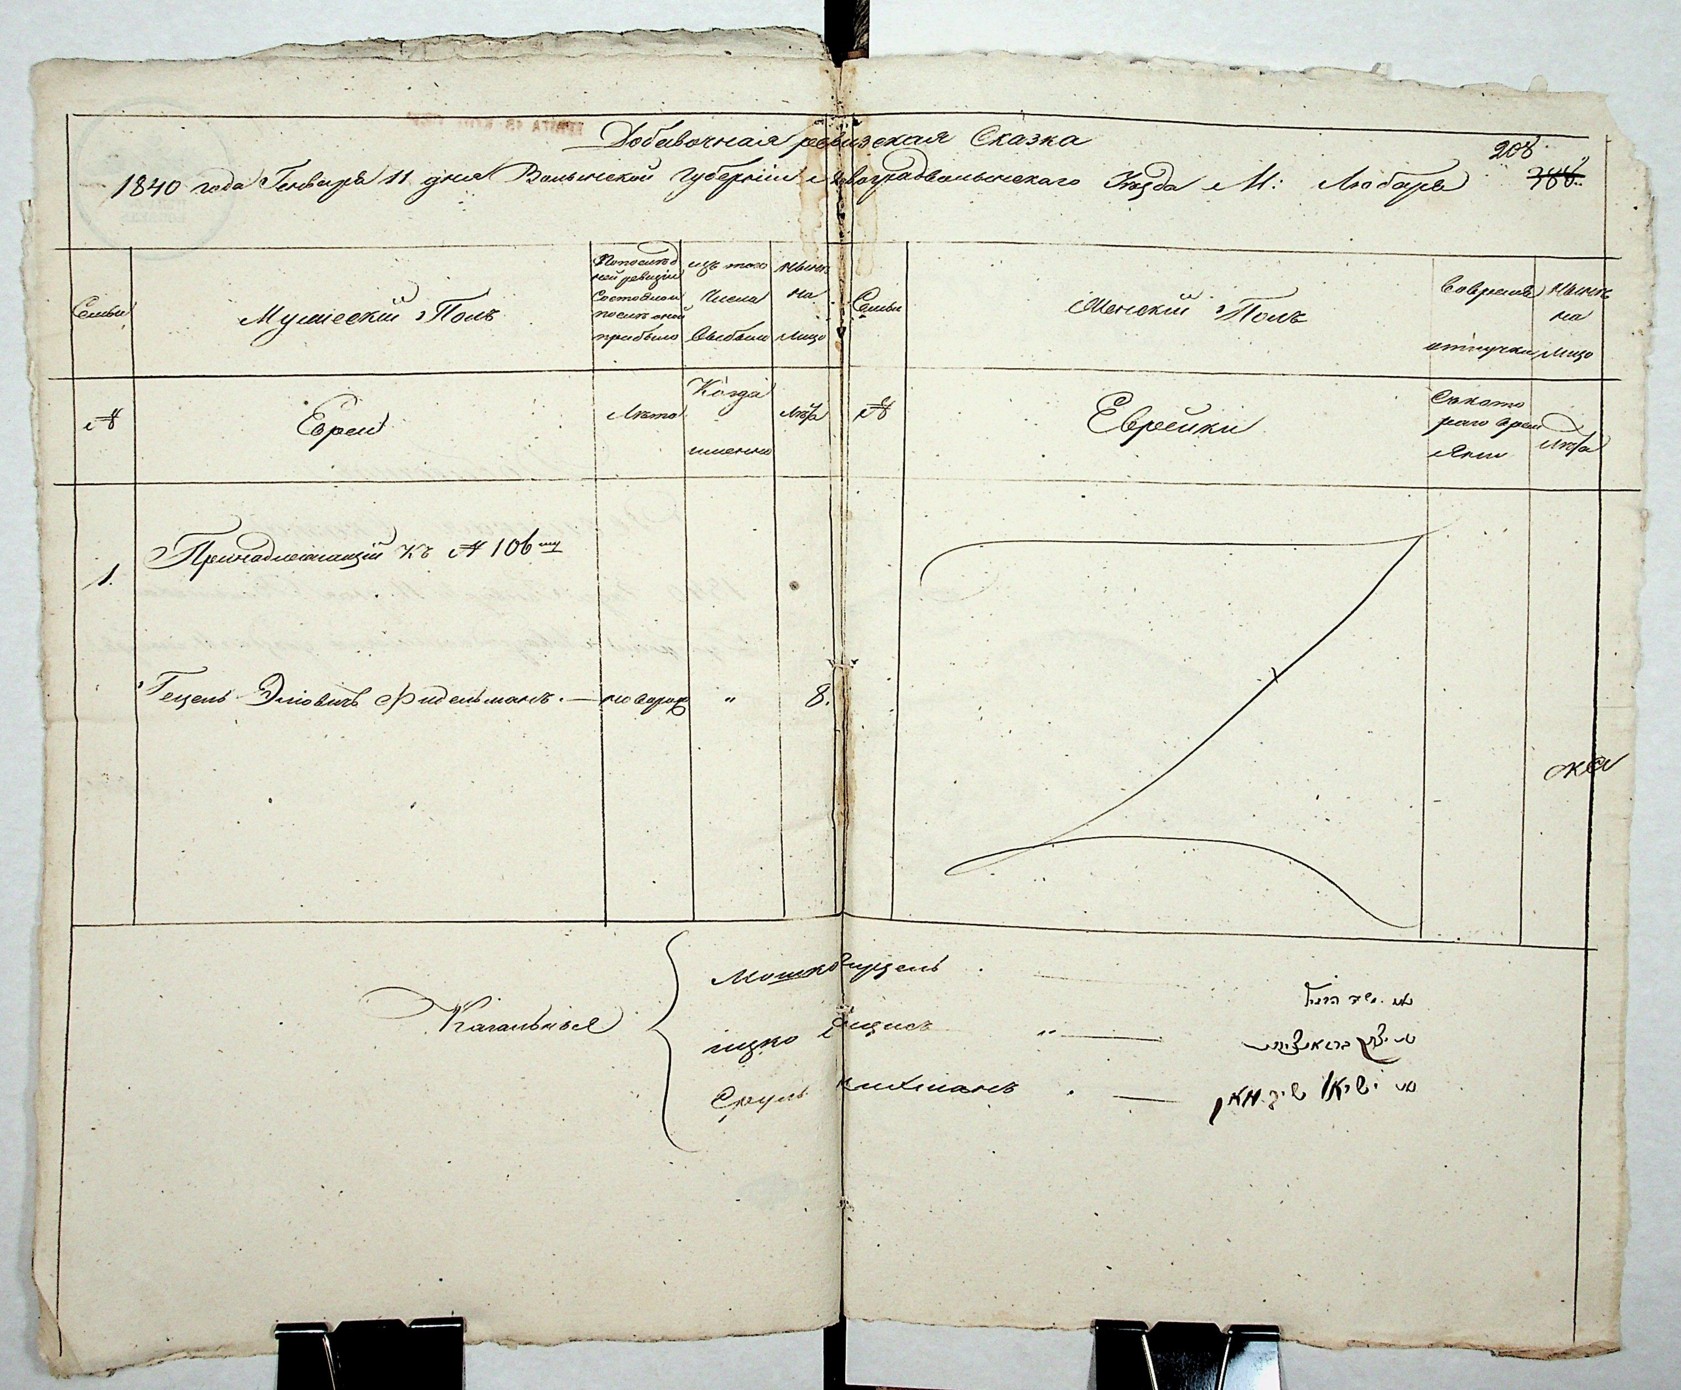 Добавочная ревизская Сказка
1840 года Генваря 11 дня Волынской Губернии Новоградволынского Уезда М: Любаря
208.
388.
Семьи
Мужеский Полъ
По последней ревизии состояло и после оной прибыло
изъ того Числа Выбыло
Ныне на лицо
Семьи
Женский Полъ
Во временной отлучки
Ныне на лицо
№
Евреи
Лета
Когда именно
Лета
№
Еврейки
Съ которого времяни
Лета
1.
Принадлежащій къ № 106му
Гецель Эліовичъ Фидельманъ. — новорож " 8.
Кагальные
Мошко
Ицко
Сруль